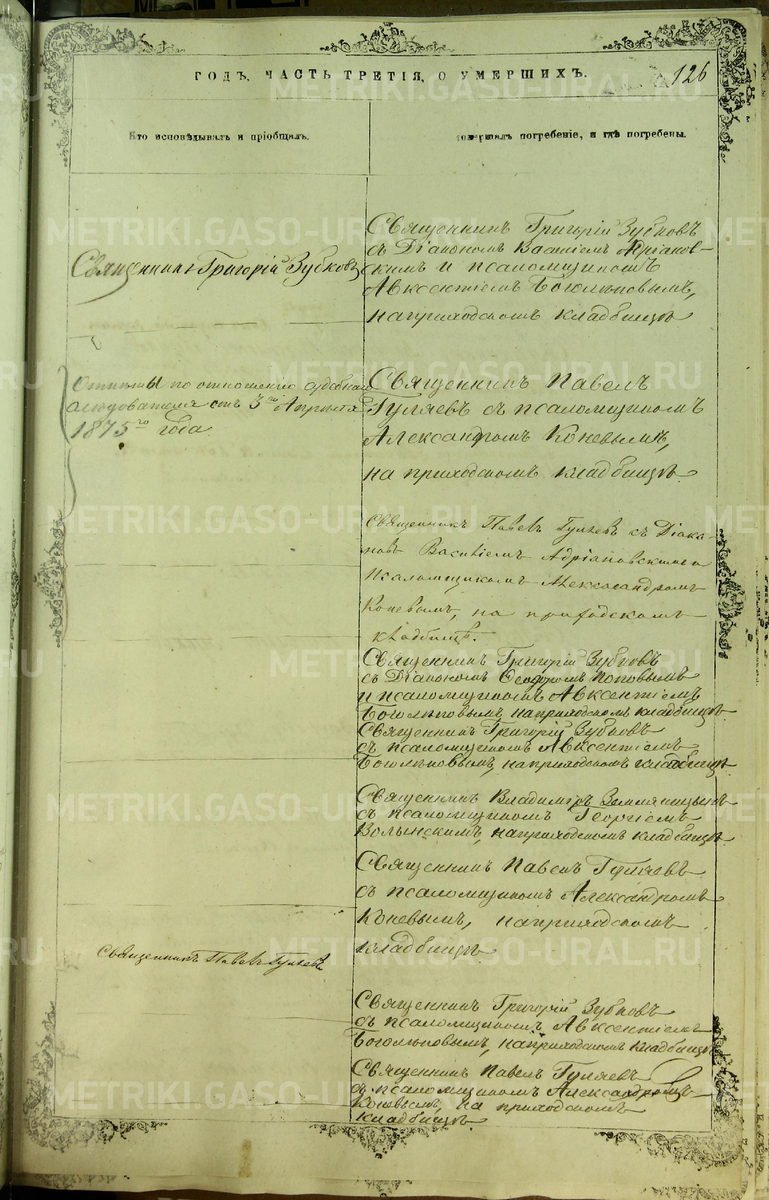 ГОДЪ, ЧАСТЬ ТРЕТІЯ, О УМЕРШИХЪ.
126
Кто исповѣдывалъ и пріобщалъ.
совершалъ погребеніе, и гдѣ погребены.
Священникъ Григорій Зубковъ
Священникъ Григорій Зубковъ
съ Діакономъ Василіемъ Адріанов-
скимъ и псаломщикомъ
Авксентіемъ Боголѣповымъ,
на приходскомъ кладбищѣ
Отпѣты по отношенію судебнаго
слѣдователя отъ 3го Апрѣля
1875го года
Священникъ Павелъ
Гуляевъ съ псаломщикомъ
Александромъ Коневымъ,
на приходскомъ кладбищѣ.
Священникъ Павелъ Гуляевъ съ Діако-
номъ Василіемъ Адріановскимъ и
Псаломщикомъ Александромъ
Коневымъ, на приходскомъ
кладбищѣ.
Священникъ Григорій Зубковъ
съ Діакономъ Поповымъ
и псаломщикомъ Авксентіемъ
Боголѣповымъ, на приходскомъ кладбищѣ.
Священникъ Григорій Зубковъ
съ псаломщикомъ Авксентіемъ
Боголѣповымъ, на приходскомъ кладбищѣ.
Священникъ Владиміръ Земляницынъ
съ псаломщикомъ Георгіемъ
Волынскимъ, на приходскомъ кладбищѣ.
Священникъ Павелъ Гуляевъ
съ псаломщикомъ Александромъ
Коневымъ, на приходскомъ
кладбищѣ
Священникъ Павелъ Гуляевъ
Священникъ Григорій Зубковъ
съ псаломщикомъ Авксентіемъ
Боголѣповымъ, на приходскомъ кладбищѣ
Священникъ Павелъ Гуляевъ
съ псаломщикомъ Александромъ
Коневымъ, на приходскомъ
кладбищѣ
METRIKI.GASO-URAL.RU